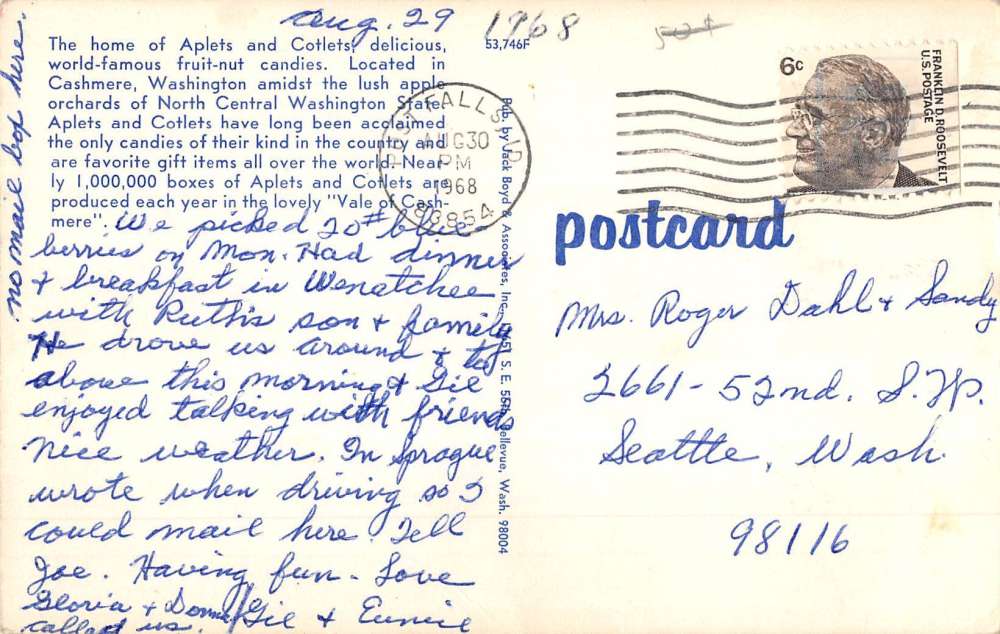 Aug. 29 1968
50¢
The home of Aplets and Cotlets, delicious,
world-famous fruit-nut candies. Located in
Cashmere, Washington amidst the lush apple
orchards of North Central Washington State.
Aplets and Cotlets have long been acclaimed
the only candies of their kind in the country and
are favorite gift items all over the world. Near-
ly 1,000,000 boxes of Aplets and Cotlets are
produced each year in the lovely "Vale of Cash-
mere".
53,746F
no mail box here.
We picked 20# blue
berries on Mon. Had dinner
& breakfast in Wenatchee
with Ruth's son & family
He drove us around & to
above this morning & Gil
enjoyed talking with friends
Nice weather. In Sprague
wrote when driving so I
could mail here. Tell
Joe. Having fun - Love
Gloria & Donna Gil & Eunice
called us.
Pub. by Jack Boyd & Associates, Inc., S. E. Bellevue, Wash. 98004
POST FALLS, ID.
AUG 30
PM
1968
83854
6c
FRANKLIN D. ROOSEVELT
U.S. POSTAGE
postcard
Mrs. Roger Dahl & Sandy
2661 - 52nd. S.W.
Seattle, Wash.
98116